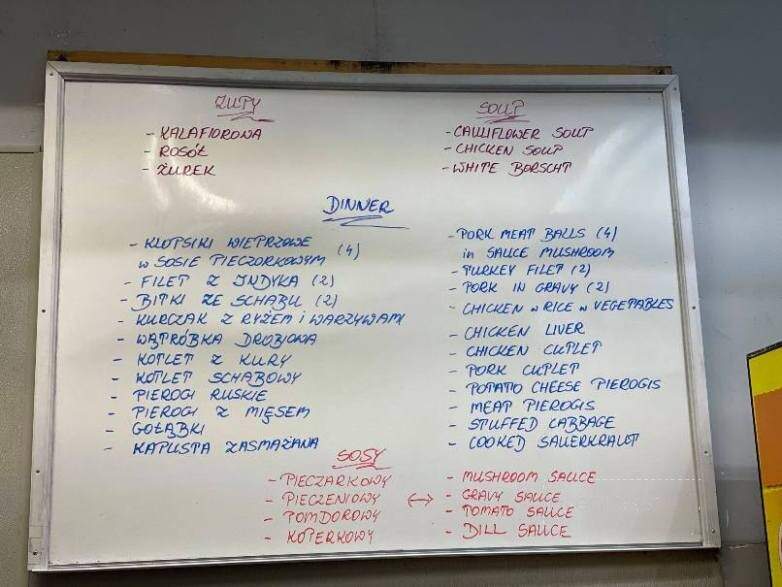 ZUPY
- KALAFIOROWA
- ROSÓŁ
- ŻUREK
SOUP
- CAULIFLOWER SOUP
- CHICKEN SOUP
- WHITE BORSCHT
DINNER
- KLOPSIKI WIEPRZOWE (4)
W SOSIE PIECZORKOWYM
- FILET Z INDYKA (2)
- BITKI ZE SCHABU (2)
- KURCZAK Z RYŻEM i WARZYWAMI
- WĄTRÓBKA DROBIOWA
- KOTLET Z KURY
- KOTLET SCHABOWY
- PIEROGI RUSKIE
- PIEROGI Z MIĘSEM
- GOŁĄBKI
- KAPUSTA ZASMAŻANA
- PORK MEAT BALLS (4)
in SAUCE MUSHROOM
- TURKEY FILET (2)
- PORK IN GRAVY (2)
- CHICKEN W RICE W VEGETABLES
- CHICKEN LIVER
- CHICKEN CUTLET
- PORK CUTLET
- POTATO CHEESE PIEROGIS
- MEAT PIEROGIS
- STUFFED CABBAGE
- COOKED SAUERKRAUT
SOSY
- PIECZARKOWY
- PIECZENIOWY ↔
- POMDOROWY
- KOPERKOWY
- MUSHROOM SAUCE
- GRAVY SAUCE
- TOMATO SAUCE
- DILL SAUCE